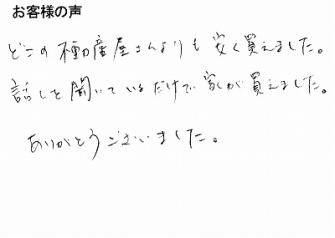 お客様の声
どこの不動産屋さんよりも安く買えました。
話しを聞いているだけで家が買えました。
ありがとうございました。